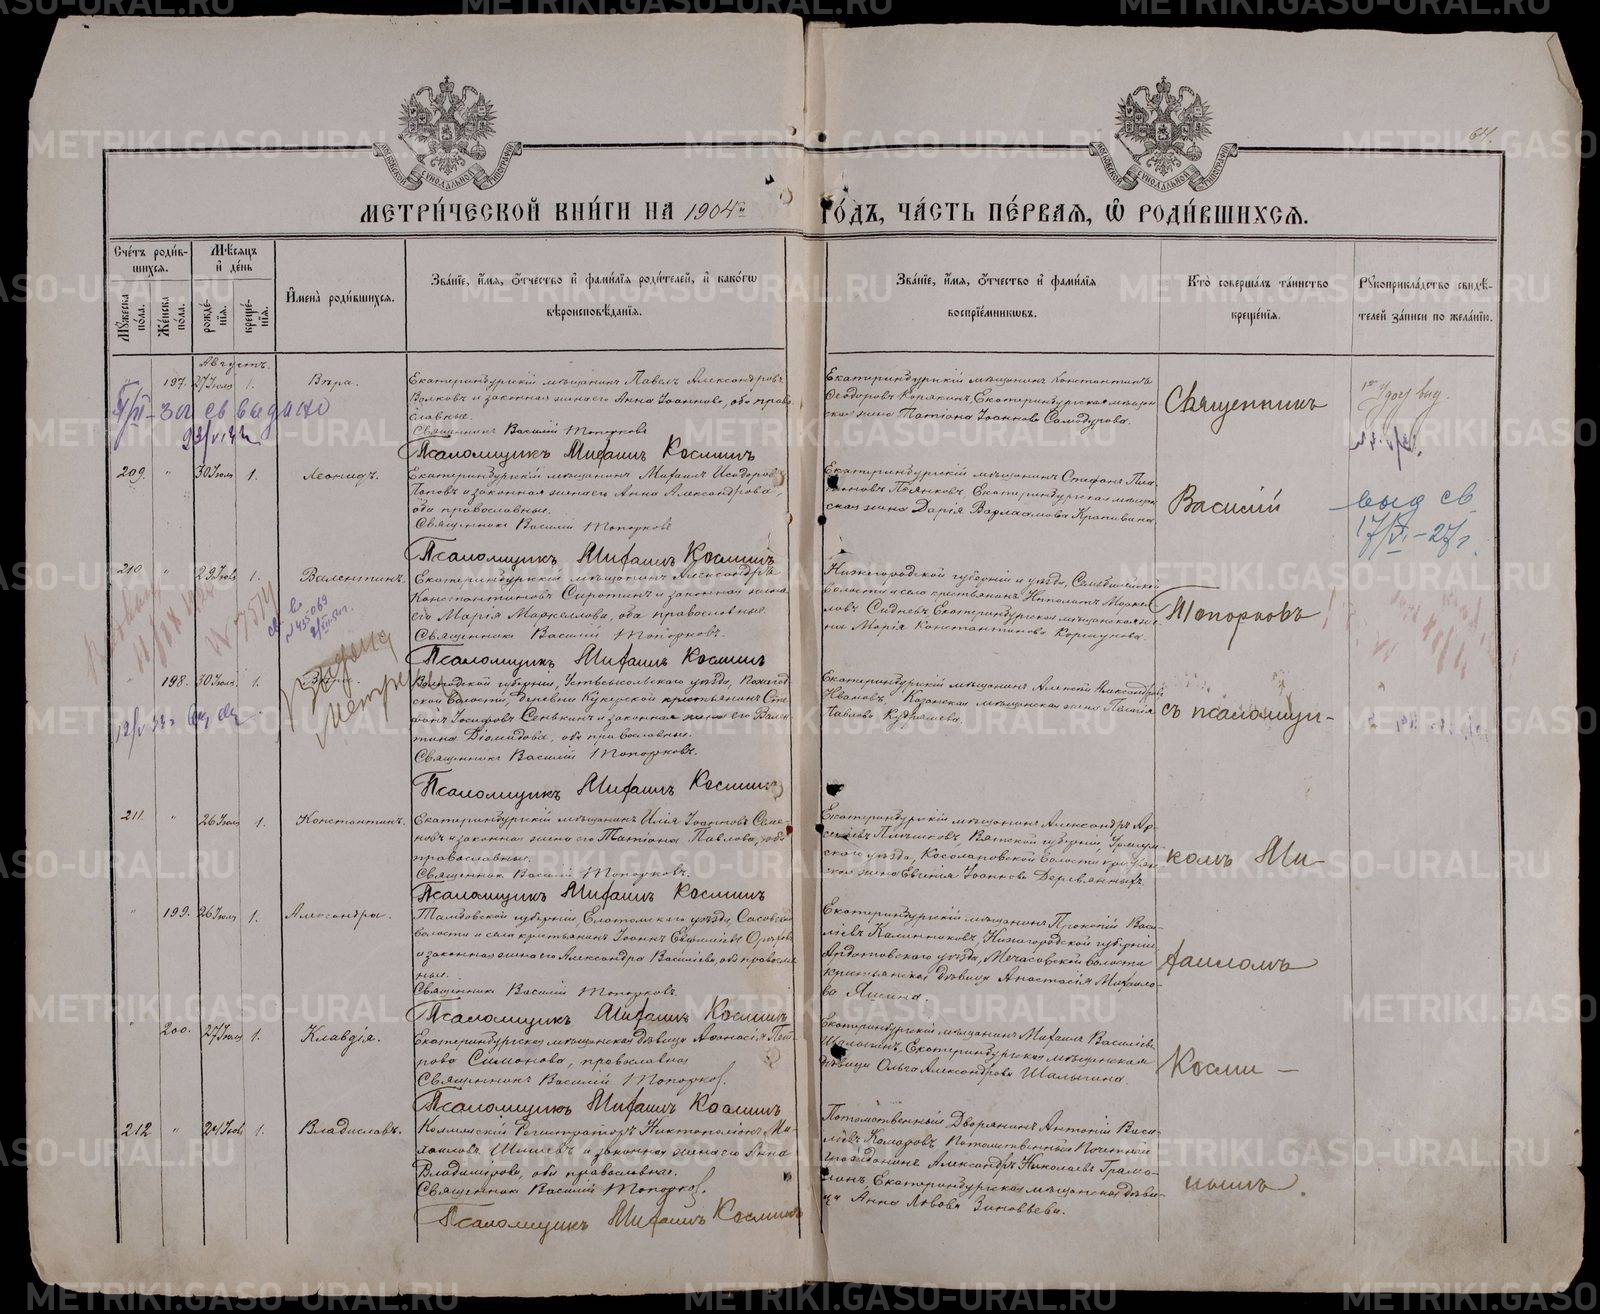 METRIKI.GASO-URAL.RU
64
МОСКОВСКОЙ СѴНОДАЛЬНОЙ ТИПОГРАФІИ
МОСКОВСКОЙ СѴНОДАЛЬНОЙ ТИПОГРАФІИ
МЕТРИ́ЧЕСКОЙ КНИ́ГИ НА 1904й ГО́ДЪ, ЧА́СТЬ ПЕ́РВАЯ, Ѿ РОДИ́ВШИХСЯ.
Сче́тъ роди́в-
шихся.
Мѣ́сяцъ
и҆ де́нь
Мꙋ́жеска по́ла.
Же́нска по́ла.
рожде́-
нія.
креще́-
нія.
И҆мена̀ роди́вшихся.
Зва́ніе, и҆́мя, ѻ҆́тчество и҆ фами́лія роди́телей, и҆ како́гѡ
вѣроисповѣ́данія.
Зва́ніе, и҆́мя, ѻ҆́тчество и҆ фами́лія
воспріе́мникѡвъ.
Кто̀ соверша́лъ та́инство
креще́нія.
Рꙋкоприкла́дство свидѣ́-
телей за́писи по жела́нію.
Августъ.
197. 27 Іюля 1. Вѣра.
Екатеринбургскій мѣщанинъ Павелъ Александровъ
Волковъ и законная жена его Анна Іоаннова, оба право-
славные.
Священникъ Василій Топорковъ
Псаломщикъ Михаилъ Космин
Екатеринбургскій мѣщанинъ Константинъ
Ѳеодоровъ Корякинъ, Екатеринбургская мѣщан-
ская жена Татіана Іоаннова Самодурова.
Священникъ
св выдано
209. " 30 Іюля 1. Леонидъ.
Екатеринбургскій мѣщанинъ Михаилъ Исидоровъ
Поповъ и законная жена его Анна Александрова,
оба православные.
Священникъ Василій Топорковъ
Псаломщикъ Михаилъ Космин
Екатеринбургскій мѣщанинъ Стефанъ Пла-
тоновъ Пьянковъ, Екатеринбургская мѣщан-
ская жена Дарія Варлаамова Крапивина
Василій
выд св
17/XI-27г.
210. " 29 Іюля 1. Валентинъ.
Екатеринбургскій мѣщанинъ Александръ
Константиновъ Сиротинъ и законная жена
его Марія Маркелова, оба православные.
Священникъ Василій Топорковъ.
Псаломщикъ Михаилъ Космин
Нижегородской губерніи и уѣзда,
волости и села крестьянинъ Ипполитъ
Сидневъ, Екатеринбургская мѣщанская же-
на Марія Константинова Коршунова.
Топорковъ
Выдана
метрика
198. 30 Іюля 1.
Вологодской губерніи, Устьсысольскаго уѣзда,
ской волости, деревни крестьянинъ Сте-
фанъ Іосифовъ Сенькинъ и законная жена его Вален-
тина Діомидова, оба православные.
Священникъ Василій Топорковъ.
Псаломщикъ Михаилъ Космин
Екатеринбургскій мѣщанинъ Алексій Александровъ
Ивановъ, Казанская мѣщанская жена Пелагія
Павлова Кудряшева.
съ псаломщи-
211. " 26 Іюля 1. Константинъ.
Екатеринбургскій мѣщанинъ Илія Іоанновъ Семе-
новъ и законная жена его Татіана Павлова, оба
православные.
Священникъ Василій Топорковъ.
Псаломщикъ Михаилъ Космин
Екатеринбургскій мѣщанинъ Александръ Ар-
сеніевъ Плѣшковъ, Вятской губерніи, Уржум-
скаго уѣзда, Косолаповской волости крестьян-
ская жена Евгенія Іоаннова Деревянныхъ.
комъ Ми-
" 199. 26 Іюля 1. Александра.
Тамбовской губерніи, Елатомскаго уѣзда, Сасовской
волости и села крестьянинъ Іоаннъ Евфиміевъ
и законная жена его Александра Василіева, оба православ-
ные.
Священникъ Василій Топорковъ.
Псаломщикъ Михаилъ Космин
Екатеринбургскій мѣщанинъ Прокопій Васи-
ліевъ Калинниковъ, Нижегородской губерніи,
Ардатовскаго уѣзда, Мечасовской волости
крестьянская дѣвица Анастасія Михаило-
ва Яшина.
хаиломъ
" 200. 27 Іюля 1. Клавдія.
Екатеринбургская мѣщанская дѣвица Аѳанасія Пет-
рова Симонова, православная
Священникъ Василій Топорков.
Псаломщикъ Михаилъ Космин
Екатеринбургскій мѣщанинъ Михаилъ Василіевъ
Шалыгинъ, Екатеринбургская мѣщанская
дѣвица Ольга Александрова Шалыгина.
Косми-
212 " 24 Іюля 1. Владиславъ.
Коллежскій Регистраторъ Никтополіонъ Ми-
хаиловъ Шишевъ и законная жена его Анна
Владимірова, оба православные.
Священникъ Василій Топорков.
Псаломщикъ Михаилъ Космин
Потомственный Дворянинъ Антоній Васи-
ліевъ Комаровъ, Потомственный Почетный
гражданинъ Александръ Николаевъ Грамо-
линъ, Екатеринбургская мѣщанская дѣви-
ца Анна Львова Зиновьева.
нымъ.